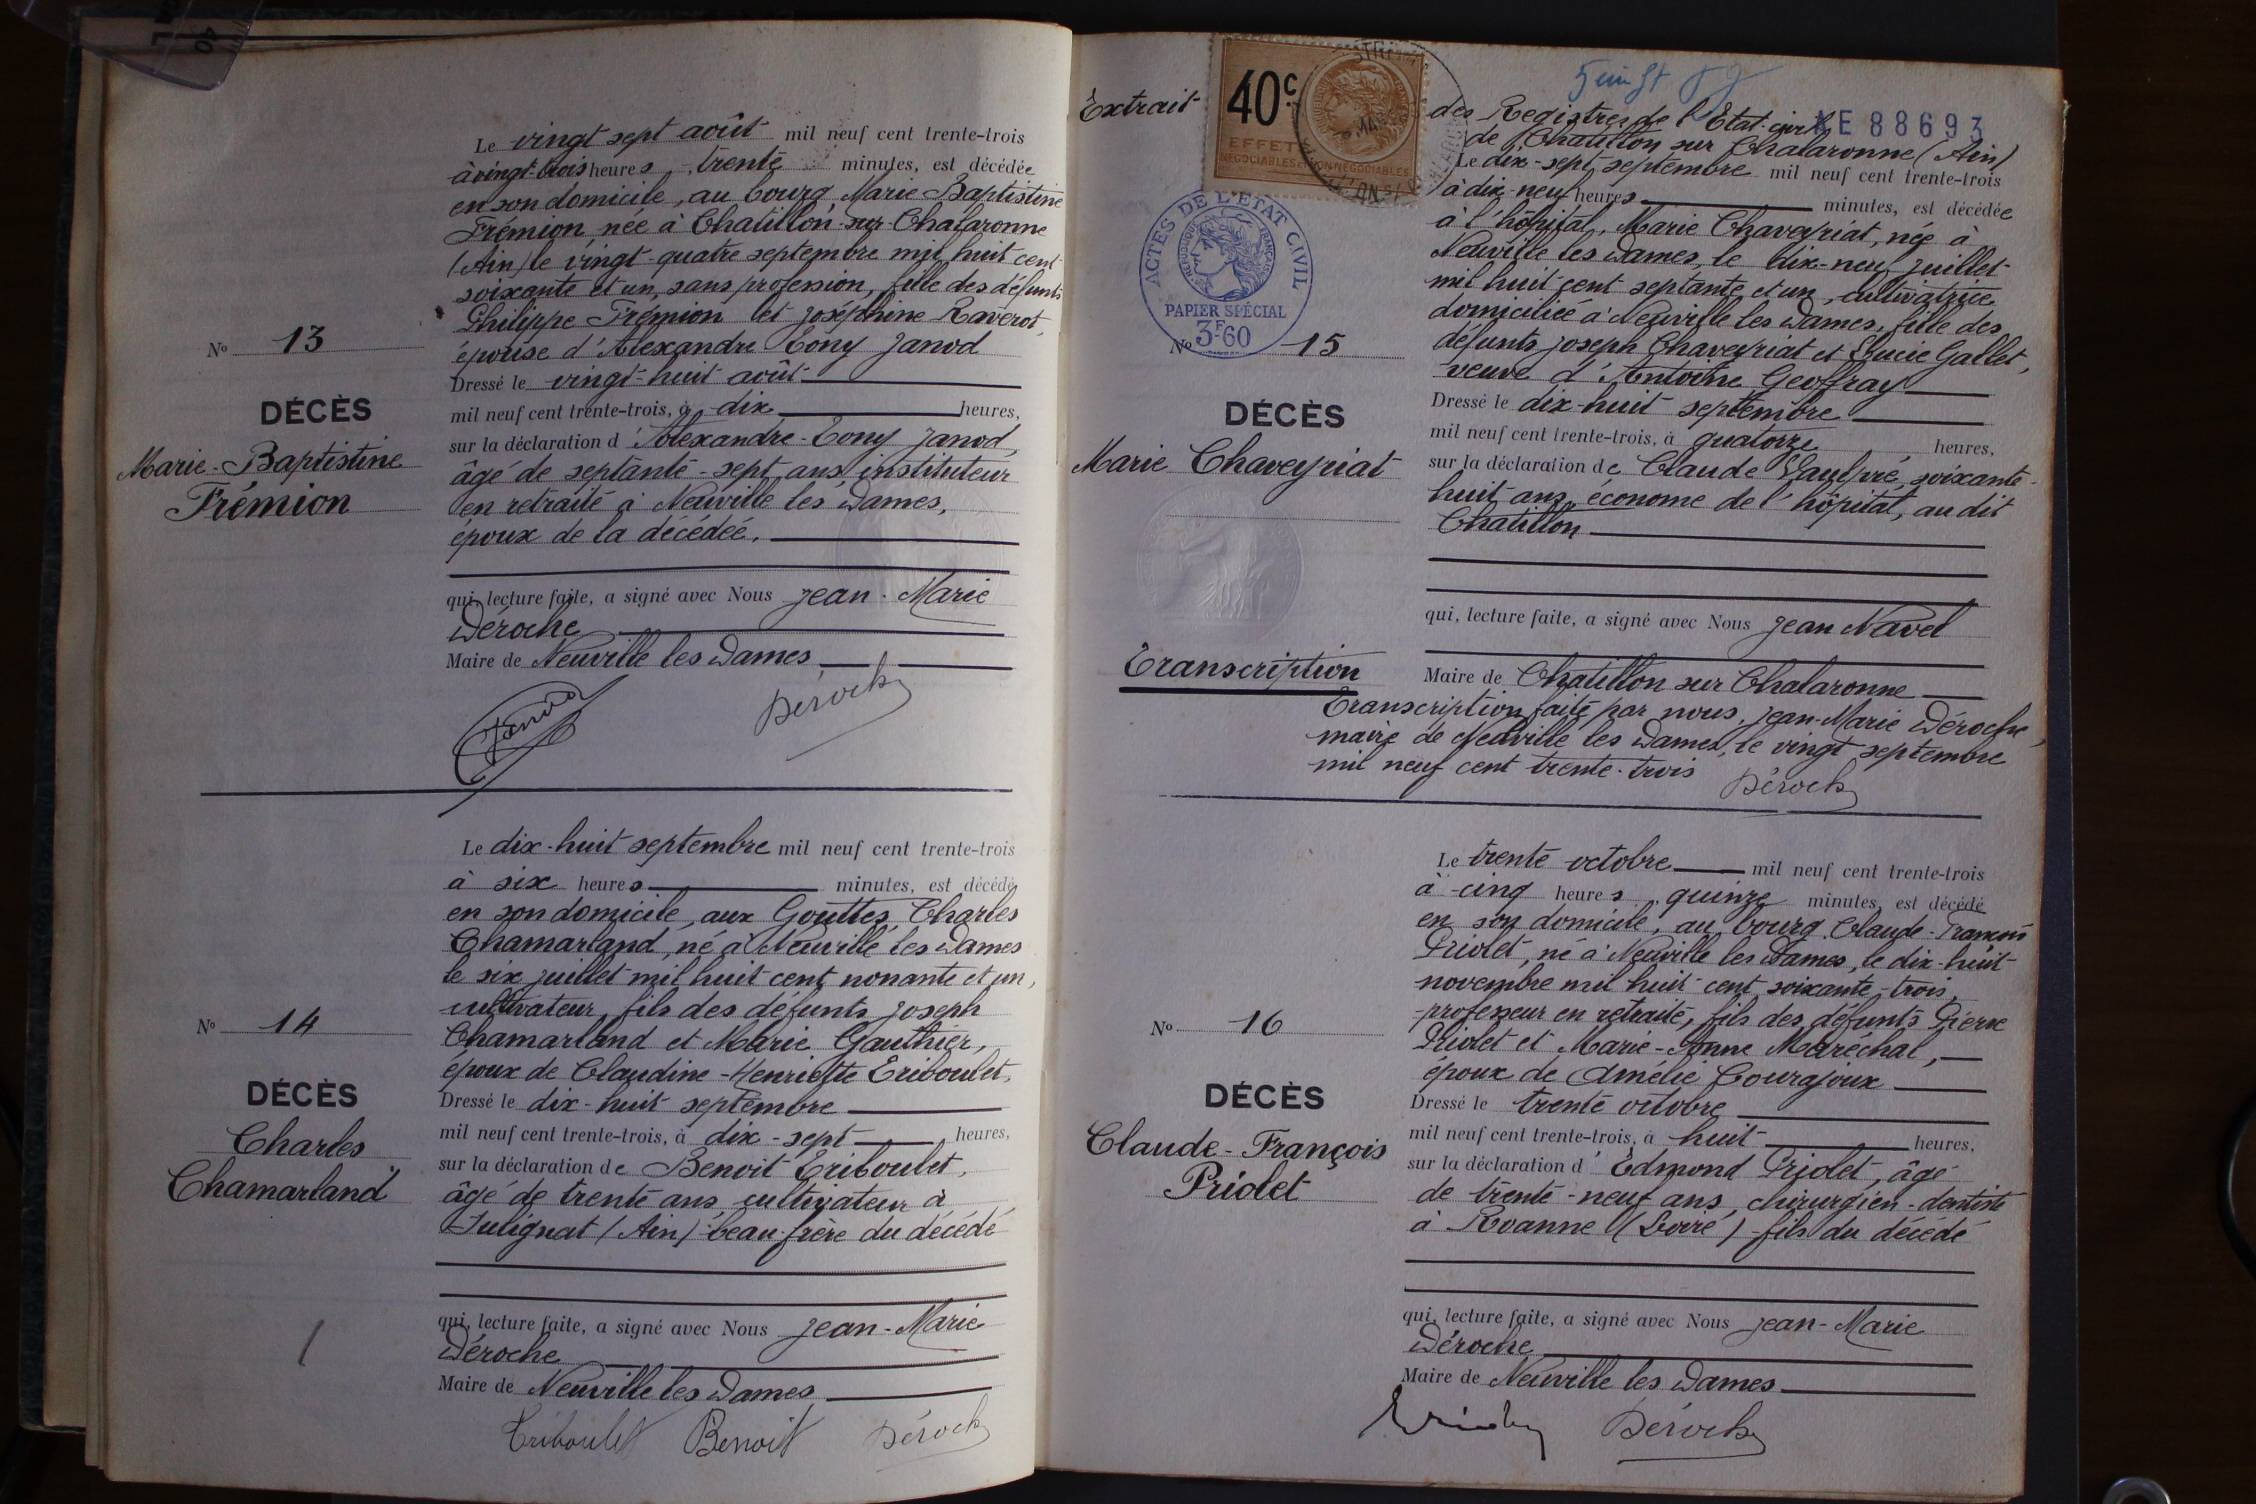 Le vingt sept août mil neuf cent trente-trois
à vingt-trois heures, trente minutes, est décédée
en son domicile, au bourg, Marie Baptistine
Frémion, née à Chatillon sur Chalaronne
(Ain) le vingt-quatre septembre mil huit cent
soixante et un, sans profession, fille des défunts
Philippe Frémion et Joséphine Raverot,
épouse d'Alexandre Tony Janod
Dressé le vingt-huit août
mil neuf cent trente-trois, à dix heures,
sur la déclaration d'Alexandre-Tony Janod,
âgé de septante-sept ans, instituteur
en retraite à Neuville les Dames,
époux de la décédée.
qui, lecture faite, a signé avec Nous Jean-Marie
Déroche
Maire de Neuville les Dames
Janod Déroche
No 13
DÉCÈS
Marie-Baptistine
Frémion
Le dix-huit septembre mil neuf cent trente-trois
à six heures minutes, est décédé
en son domicile, aux Gouttes, Charles
Chamarland, né à Neuville les Dames
le six juillet mil huit cent nonante et un,
cultivateur, fils des défunts Joseph
Chamarland et Marie Gauthier,
époux de Claudine-Henriette Triboulet.
Dressé le dix-huit septembre
mil neuf cent trente-trois, à dix-sept heures,
sur la déclaration de Benoit Triboulet,
âgé de trente ans, cultivateur à
Sulignat (Ain) beau-frère du décédé
qui, lecture faite, a signé avec Nous Jean-Marie
Déroche
Maire de Neuville les Dames
Triboulet Benoit Déroche
No 14
DÉCÈS
Charles
Chamarland
Extrait des Registres de l'Etat-civil
de Chatillon sur Chalaronne (Ain)
40c
EFFETS
NÉGOCIABLES & NON NÉGOCIABLES
E 88693
ACTES DE L'ETAT CIVIL
RÉPUBLIQUE FRANÇAISE
PAPIER SPÉCIAL
3F60
Le dix-sept septembre mil neuf cent trente-trois
à dix-neuf heures minutes, est décédée
à l'hôpital, Marie Chaveyriat, née à
Neuville les Dames, le dix-neuf juillet
mil huit cent septante et un, cultivatrice
domiciliée à Neuville les Dames, fille des
défunts Joseph Chaveyriat et Lucie Gallet,
veuve d'Antoine Geoffray
Dressé le dix-huit septembre
mil neuf cent trente-trois, à quatorze heures,
sur la déclaration de Claude Vaulpré, soixante-
huit ans, économe de l'hôpital, au dit
Chatillon
qui, lecture faite, a signé avec Nous Jean Navel
Maire de Chatillon sur Chalaronne
No 15
DÉCÈS
Marie Chaveyriat
Transcription
Transcription faite par nous, Jean-Marie Déroche,
maire de Neuville les Dames, le vingt septembre
mil neuf cent trente-trois Déroche
Le trente octobre mil neuf cent trente-trois
à cinq heures quinze minutes, est décédé
en son domicile, au bourg, Claude-François
Priolet, né à Neuville les Dames, le dix-huit
novembre mil huit cent soixante-trois,
professeur en retraite, fils des défunts Pierre
Priolet et Marie-Anne Maréchal,
époux de Amélie Courajoux
Dressé le trente octobre
mil neuf cent trente-trois, à huit heures,
sur la déclaration d'Edmond Priolet, âgé
de trente-neuf ans, chirurgien-dentiste
à Roanne (Loire) fils du décédé
qui, lecture faite, a signé avec Nous Jean-Marie
Déroche
Maire de Neuville les Dames
Déroche
No 16
DÉCÈS
Claude-François
Priolet